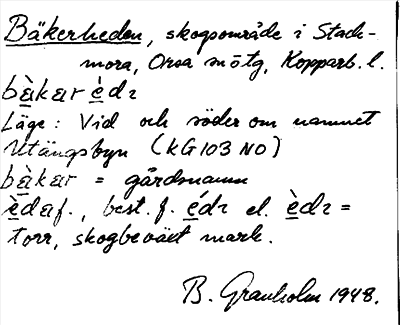 Bäkerheden, skogsområde i Stack-
mora, Orsa sn o tg, Kopparb. l.
bä̀kar è̱dɿ
Läge: Vid och söder om namnet
Utängsbyn (KG103 NO)
bä̀kar = gårdsnamn
è̱da f., best. f. é̱dɿ el. è̱dɿ =
torr, skogbeväxt mark.
B. Granholm 1948.